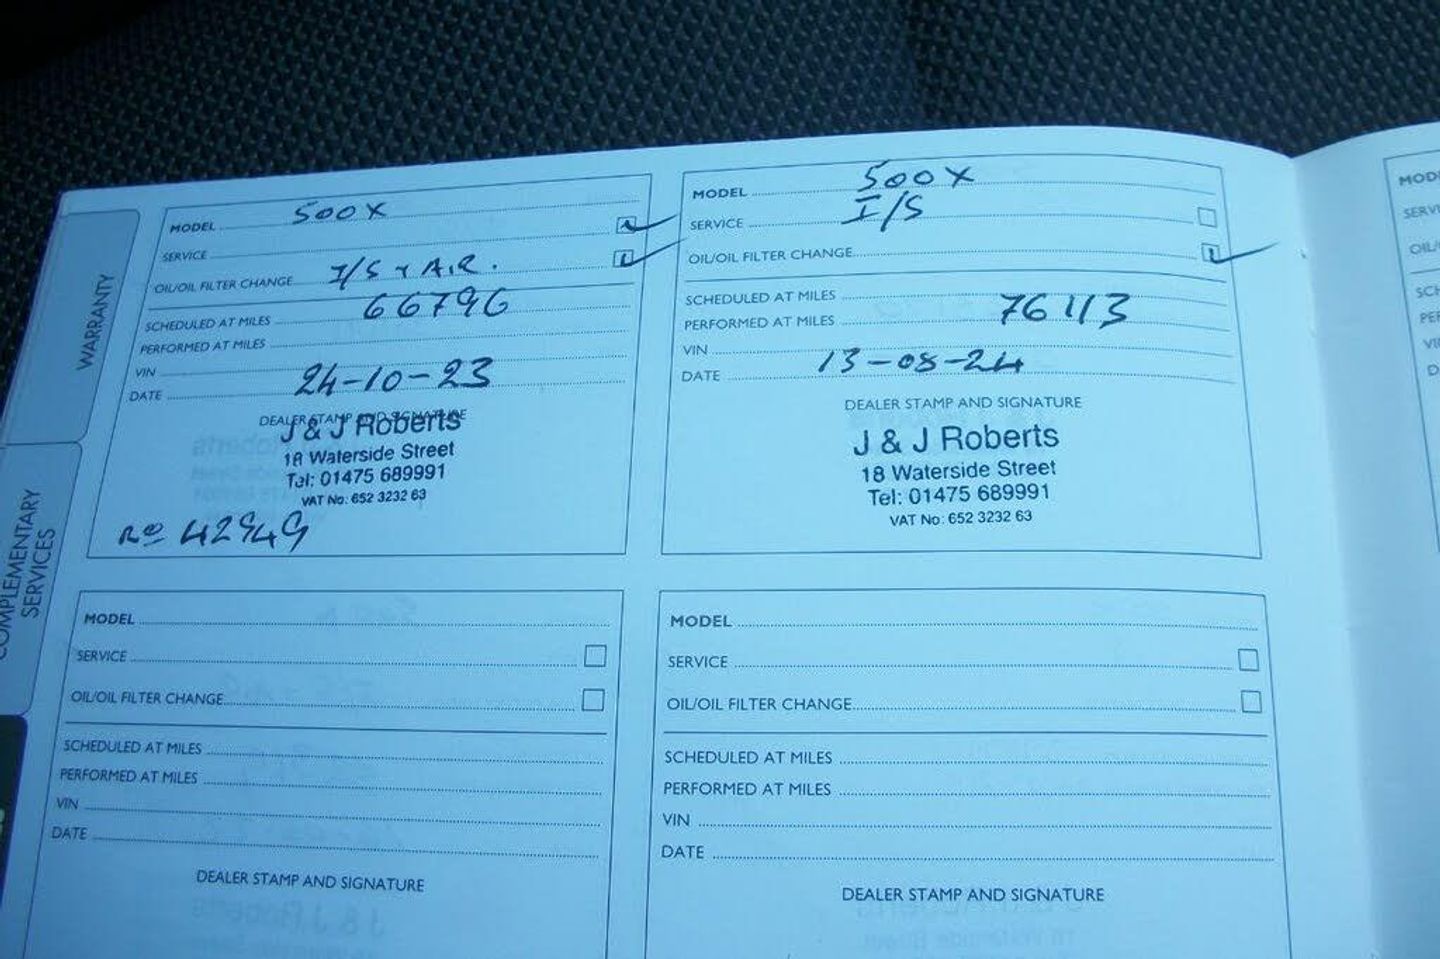 WARRANTY
COMPLEMENTARY
SERVICES
MODEL 500X
SERVICE
OIL/OIL FILTER CHANGE I/S + AIR.
SCHEDULED AT MILES 66796
PERFORMED AT MILES
VIN
DATE 24-10-23
DEALER STAMP AND SIGNATURE
J & J Roberts
18 Waterside Street
Tel: 01475 689991
VAT No: 652 3232 63
42949
MODEL 500X
SERVICE I/S
OIL/OIL FILTER CHANGE
SCHEDULED AT MILES
PERFORMED AT MILES 76113
VIN
DATE 13-08-24
DEALER STAMP AND SIGNATURE
J & J Roberts
18 Waterside Street
Tel: 01475 689991
VAT No: 652 3232 63
MODEL
SERVICE
OIL/OIL FILTER CHANGE
SCHEDULED AT MILES
PERFORMED AT MILES
VIN
DATE
DEALER STAMP AND SIGNATURE
MODEL
SERVICE
OIL/OIL FILTER CHANGE
SCHEDULED AT MILES
PERFORMED AT MILES
VIN
DATE
DEALER STAMP AND SIGNATURE